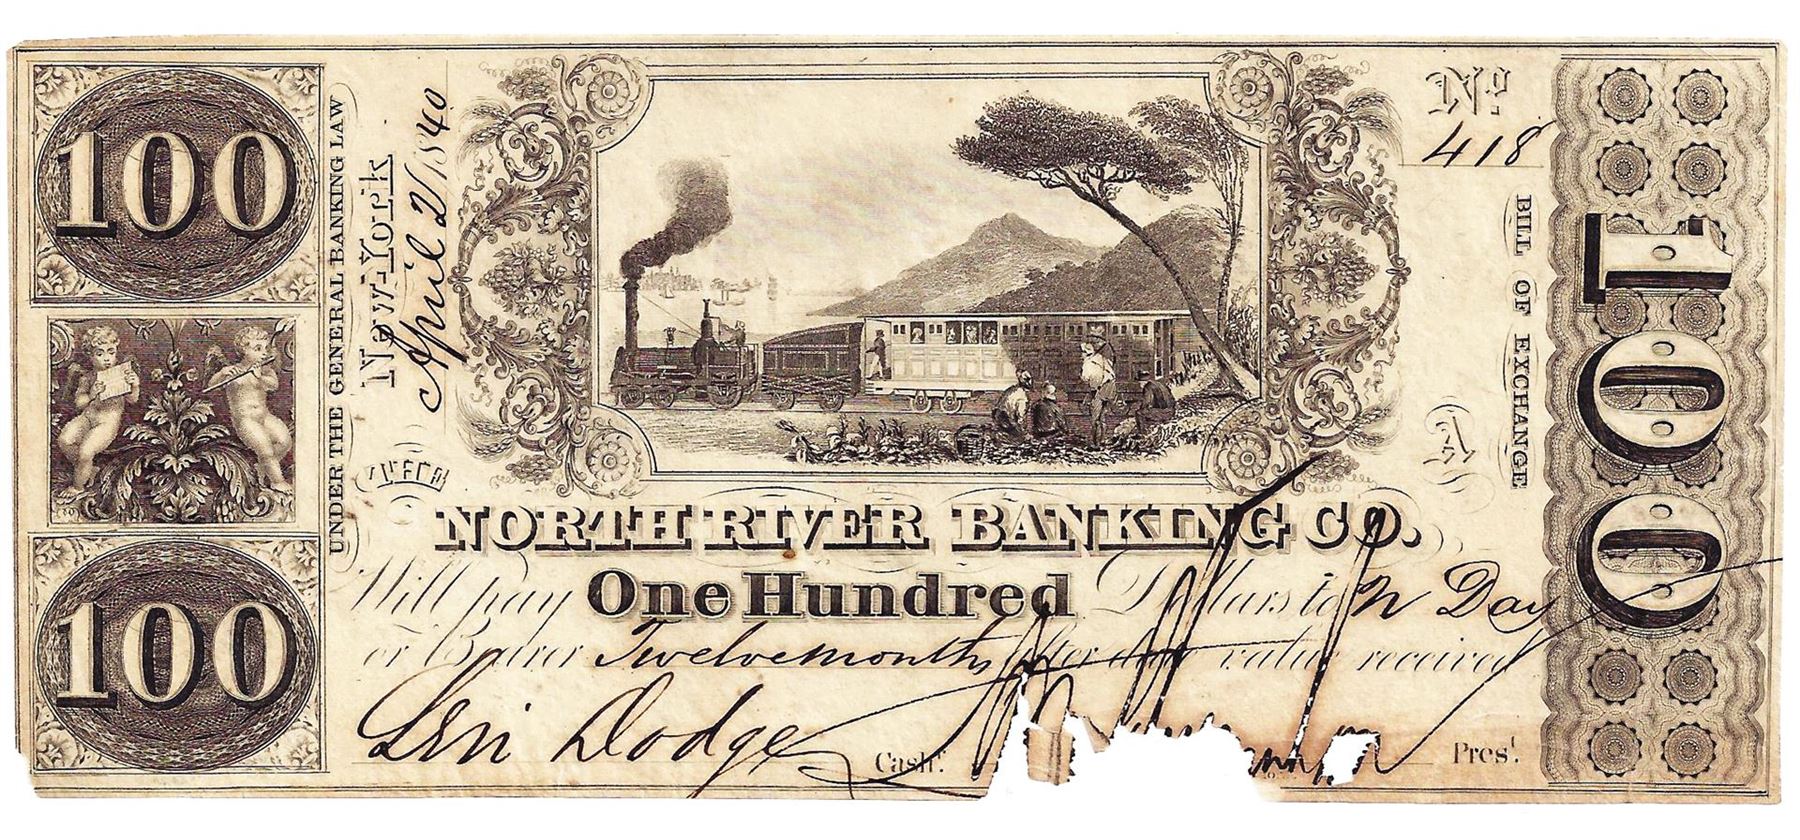 100
100
UNDER THE GENERAL BANKING LAW
New-York
April 2 1840
No.
418
BILL OF EXCHANGE
A
100
THE
NORTH RIVER BANKING CO.
Will pay One Hundred Dollars to N Day
or Bearer Twelve months after date value received
Levi Dodge Cashr. Prest.